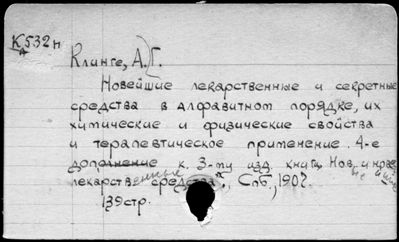 К532н
Клинге, А. Г.
Новейшие лекарственные и секретные
средства в алфавитном порядке, их
химические и физические свойства
и терапевтическое применение. 4-е
дополнение к 3-му изд. книги Нов. и
лекарственные средства", Спб., 1902.
139 стр.